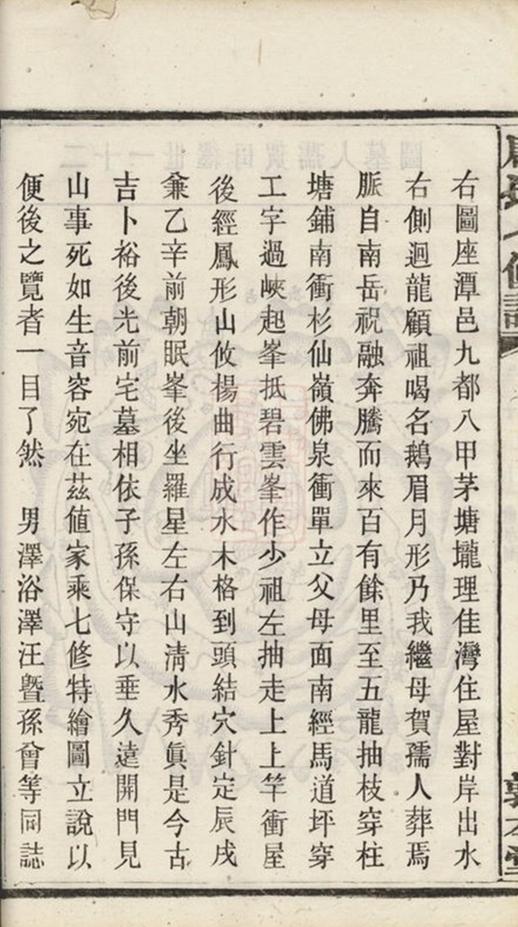 右圖座潭邑九都八甲茅塘壠理佳灣住屋對岸出水
右側迴龍顧祖喝名鵝眉月形乃我繼母賀孺人葬焉
脈自南岳祝融奔騰而來百有餘里至五龍抽枝穿柱
塘鋪南衝杉仙嶺佛泉衝單立父母面南經馬道坪穿
工字過峽起峯抵碧雲峯作少祖左抽走上上竿衝屋
後經鳳形山攸揚曲行成水木格到頭結穴針定辰戌
兼乙辛前朝眠峯後坐羅星左右山清水秀眞是今古
吉卜裕後光前宅墓相依子孫保守以垂久遠開門見
山事死如生音容宛在茲値家乘七修特繪圖立說以
便後之覽者一目了然　男澤浴澤汪曁孫曾等同誌